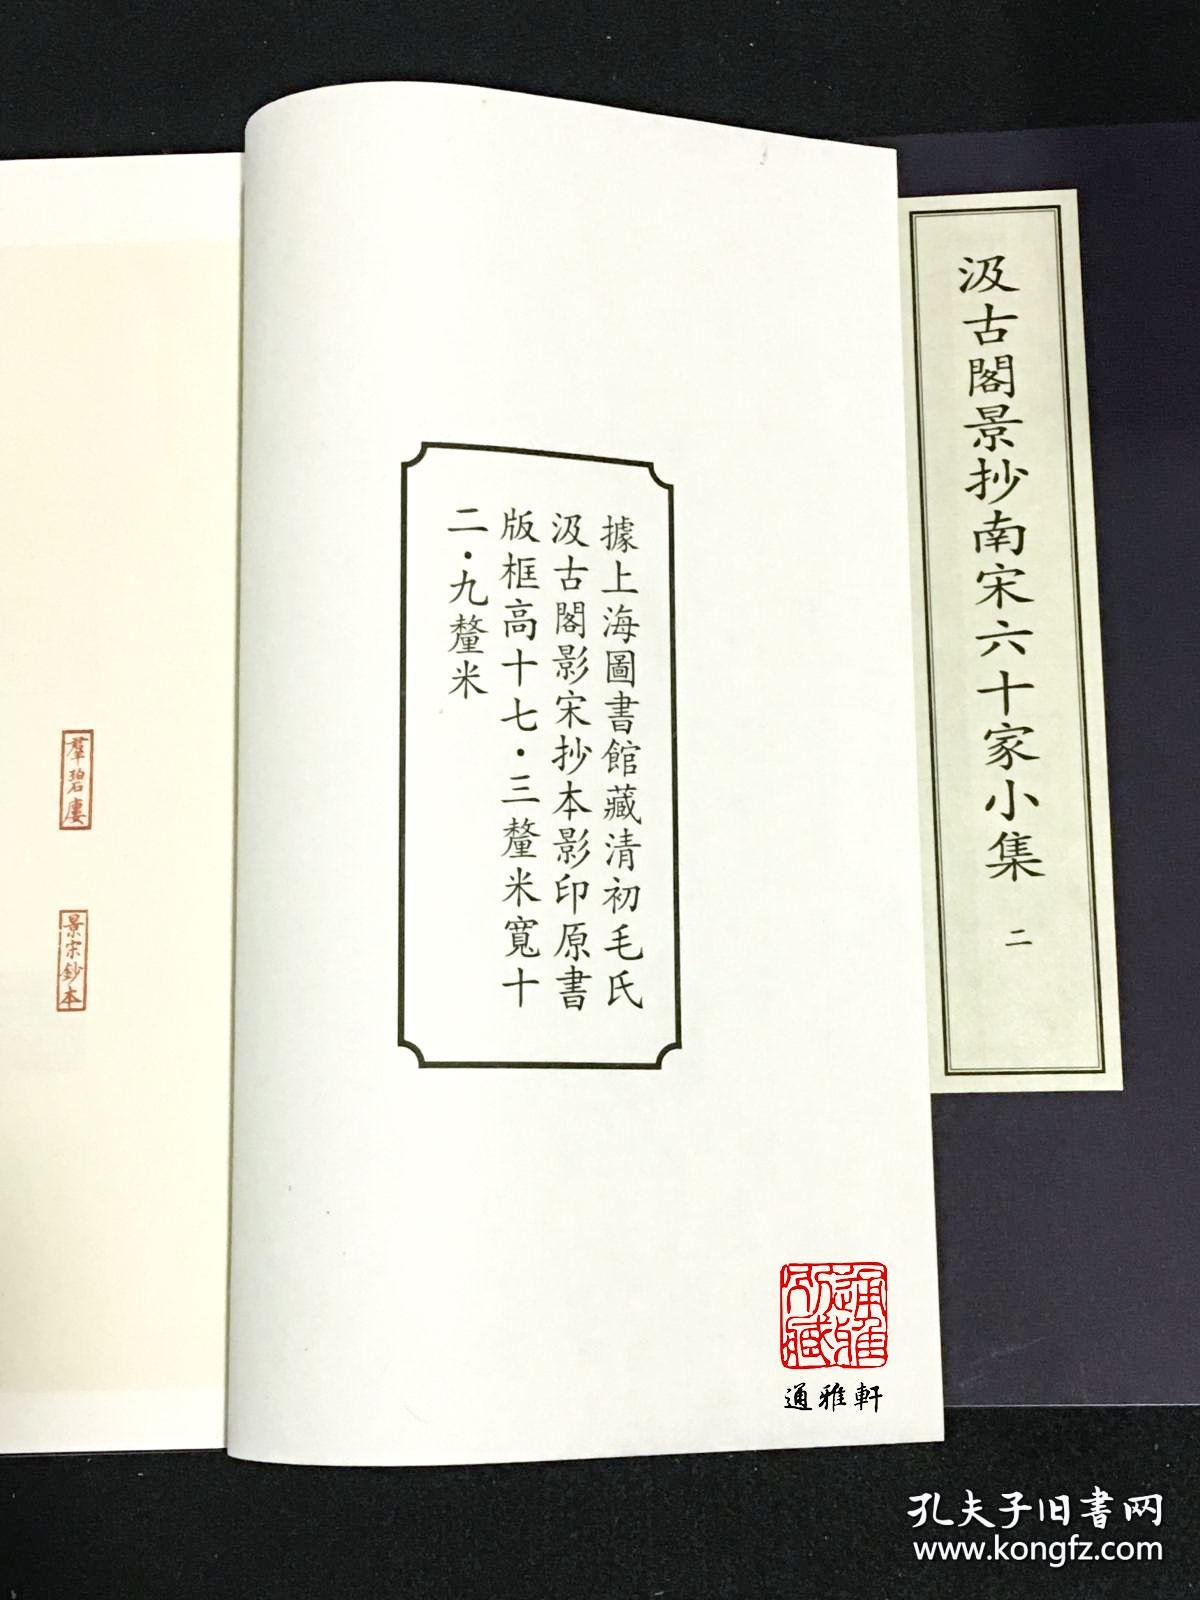 汲古閣景抄南宋六十家小集
二
據上海圖書館藏清初毛氏
汲古閣影宋抄本影印原書
版框高十七·三釐米寬十
二·九釐米
羣碧廔
景宋鈔本
通雅軒
孔夫子旧書网
www.kongfz.com